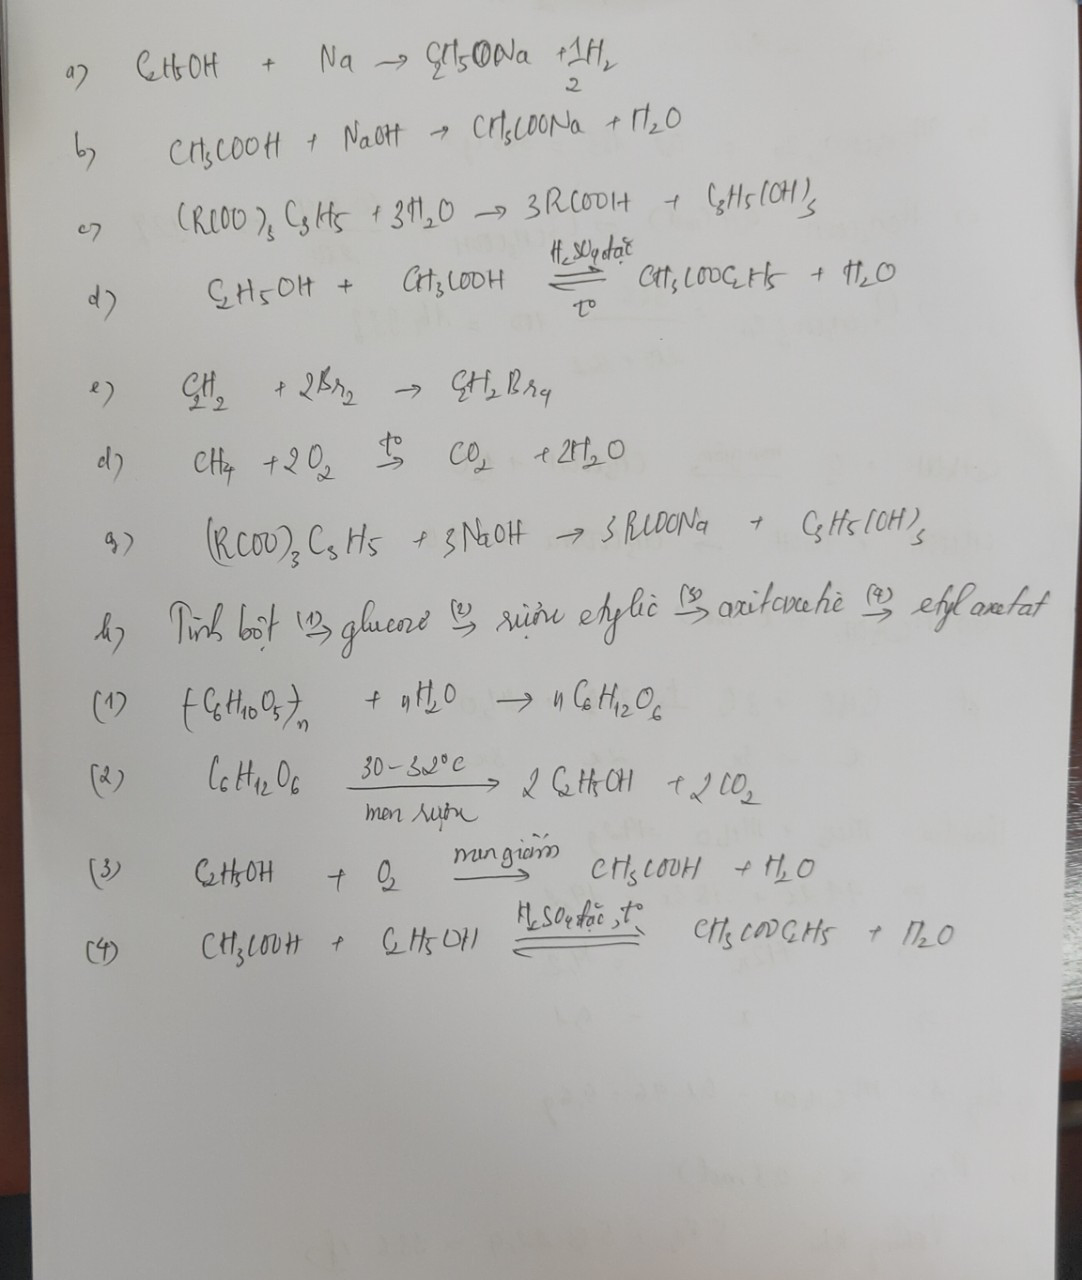 a) C2H5OH + Na → C2H5ONa + 1/2 H2
b) CH3COOH + NaOH → CH3COONa + H2O
c) (RCOO)3C3H5 + 3H2O → 3RCOOH + C3H5(OH)3
d) C2H5OH + CH3COOH ⇌ (H2SO4 đặc, t°) CH3COOC2H5 + H2O
e) C2H2 + 2Br2 → C2H2Br4
d) CH4 + 2O2 t°→ CO2 + 2H2O
g) (RCOO)3C3H5 + 3NaOH → 3RCOONa + C3H5(OH)3
h) Tinh bột (1)→ glucozơ (2)→ rượu etylic (3)→ axit axetic (4)→ etyl axetat
(1) (C6H10O5)n + nH2O → nC6H12O6
(2) C6H12O6 30-32°C→ men rượu 2C2H5OH + 2CO2
(3) C2H5OH + O2 men giấm→ CH3COOH + H2O
(4) CH3COOH + C2H5OH ⇌ (H2SO4 đặc, t°) CH3COOC2H5 + H2O